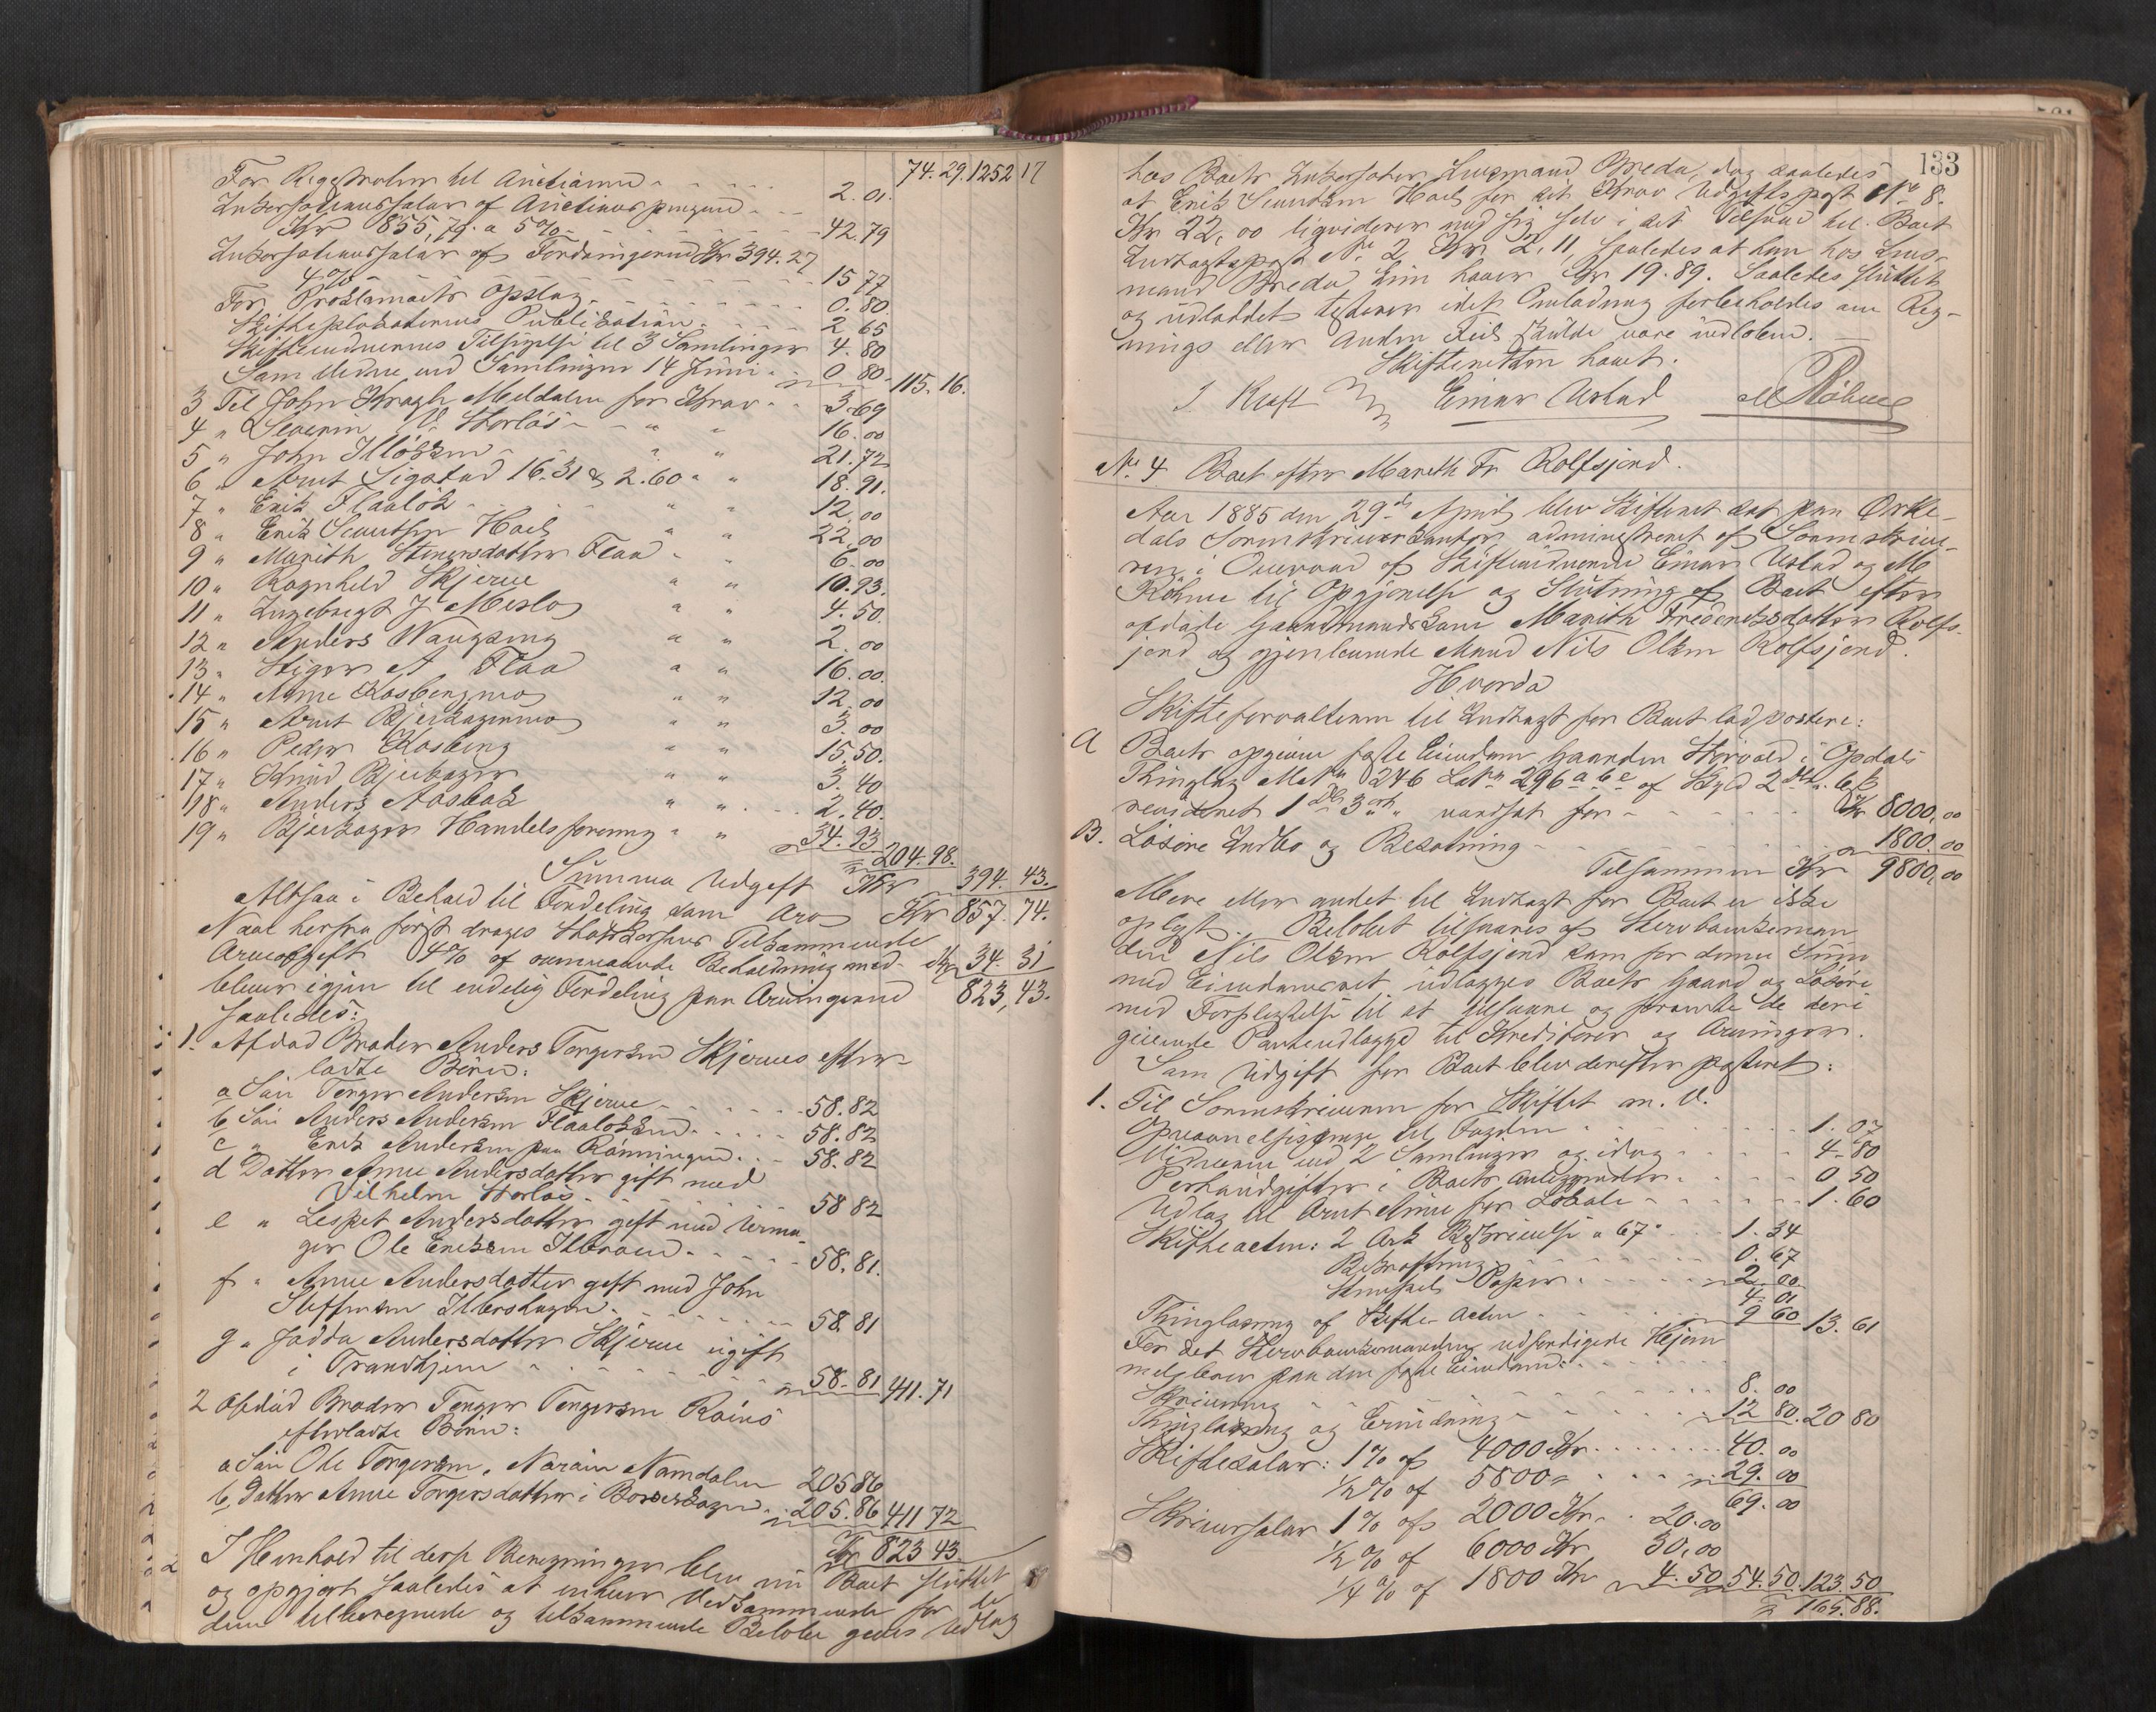 74. 29. 1252 17
For Registrolen til Auctionen 2. 01.
Inkassationssalar af Auctionspengene
Kr 855,79. a 5% 42. 79
Inkassationssalar af Fordringerne Kr 394. 27
4% 15 77
For Proklamaets Opslag 0. 80.
Skifteplakaternes Publikation 2 65
Skiftevidnernes Tilsigelse til 3 Samlinger 4. 80
Samme Vidne ved Samlingen 14 Juni 0 80. 115. 16.
3 Til John Kragh Meldalen for Krav 3. 69
4 " Severin V. Storløs " " 16. 00
5 " John Illøkken " " 21. 72
6 " Arnt Sigstad 16. 31 & 2. 60 " " 18. 91.
7 " Erik Flaaløk " " 12. 00
8 " Erik Hoel " " 22. 00
9 " Marith Steinersdatter Flaa " " 6. 00
10 " Ragnhild Skjerve " " 10. 93.
11 " Ingebregt J Meslo " " 4. 50.
12 " Anders Naugseng " " 2. 00
13 " Steiger A Flaa " " 16. 00.
14 " Anne Kosbergmo " " 12. 00
15 " Arnt Bjerkagermo " " 3. 00
16 " Peder Kosberg " " 15. 50.
17 " Knud Bjerkager " " 3. 40
18 " Anders Aasbak " " 2. 40.
19 " Bjerkager Handelsforening " " 34. 93
204. 98.
Summa Udgift Kr 394. 43.
Altsaa i Behold til Fordeling som Arv Kr 857. 74.
Naar herfra først drages Statskassens Tilkommende
Arveafgift 4% af ovennævnte Beholdning med Kr 34. 31
bliver igjen til endelig Fordeling paa Arvingerne 823, 43.
saaledes:
1. Afdød Broder Anders Torgersen Skjerves efter-
ladte Børn:
a Søn Torger Andersen Skjerve 58. 82
b Søn Anders Andersen Flaaløkken 58. 82
c " Erik Andersen paa Rønningen 58. 82
d Datter Anne Andersdatter gift med
Vilhelm Storløs 58 82
e " Lespet Andersdatter gift med
Ole Eriksen 58. 81.
f " Anne Andersdatter gift med John
Steffensen 58. 81
g " Jødda Andersdatter Skjerve ugift
i Trondhjem 58. 81 441. 71
2 Afdød Broder Torger Torgersen
efterladte Børn:
a Søn Ole Torgersen, Nærøen Namdalen 205 86
b, Datter Anne Torgersdatter i 205. 86 411 72
Kr 823 43.
I Henhold til disse Beregninger blev nu Boet sluttet
og opgjort saaledes at enhver Vedkommende for de
dem tilberegnede og tilkommende Beløber gives Udlæg
133
hos Boets Inkassator Lensmand Breda, dog saaledes
at Erik Hoel for sit Krav Udgiftspost No 8.
Kr 22, 00 liquiderer med sig selv i det Tilsvar til Boet
Indtægtspost No 2, Kr 2, 11, saaledes at han hos Lens-
mand Breda kun haver Kr 19. 89. Saaledes sluttet
og udloddet testerer idet Omlodning forbeholdes om Reg-
nings eller Anden Feil skulde være indløben.
Skifteretten hævet.
J Kraft Einar Ustad M Røhme
No 4 Boet efter Mareth Fr. Rolfsjord.
Aar 1885 den 29de April blev Skifteret sat paa Orke-
dals Sorenskriverkontor, administreret af Sorenskrive-
ren i Overvær af Skiftevidnerne Einar Ustad og M
Røhme til Opgjørelse og Slutning af Boet efter
afdøde Gaardmandskone Marith Fredriksdatter Rolfs-
jord og gjenlevende Mand Nils Olsen Rolfsjord.
Hvorda
Skifteforvalteren til Indtægt for Boet lod postere:
A Boets opgivne faste Eiendom Gaarden Storvold i Opdals
Thinglag Mat No 246 Løb No 296 a b c af Skyld 2 Dlr. 6
revideret 1 Dlr 3 ort " vurdsat for Kr 8000, 00
B. Løsøre Indbo og Besætning 1800. 00
Tilsammen Kr 9800, 00
Mere eller andet til Indtægt for Boet er ikke
oplyst. Beløbet tilsvares af Stervboenkeman
den Nils Olsen Rolfsjord som for denne Sum
med Eiendomsret udlægges Boets Gaard og Løsøre
med Forpligtelse til at tilsvare og forrente de deri
givende Panteudlægge til Kreditorer og Arvinger.
Som Udgift for Boet blev derefter posteret:
1. Til Sorenskriveren for Skiftet m. V.
Opnævnelsespenge til Fogden 1. 07
Vidnerne ved 2 Samlinger og idag 4. 80
Portoudgifter i Boets Anliggender 0 50
Udlæg til Arnt Aune for Lokale 1. 60
Skifteacten: 2 Ark Beskrivelse a 67 1. 34
Bekræftning 0. 67
Stempels Papir 2. 00.
4. 01
Thinglæsning af Skifte Acten 9 60 13. 61
For det Stervboenkemanden udfærdigede Hjem
melsbrev paa den faste Eiendom:
Skrivning 8. 00
Thinglæsning og Grundning 12 80. 20 80
Skiftesalær: 1% af 4000 Kr. 40. 00
1/2% af 5800 " 29. 00
69. 00
Skriversalær 1% af 2000 Kr. 20. 00
1/2% af 6000 Kr 30, 00
1/4% af 1800 Kr 4. 50 54. 50. 123. 50
165. 88.